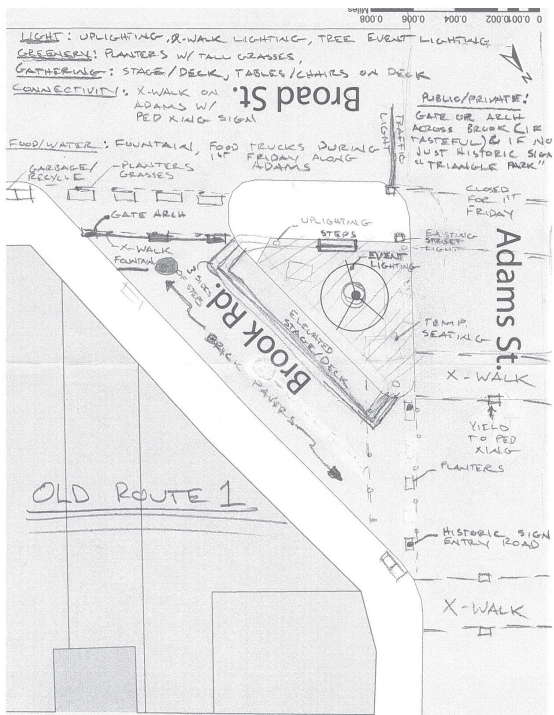 Miles
0.008 0.006 0.004 0.002 0.001 0
LIGHT: UPLIGHTING, X-WALK LIGHTING, TREE EVENT LIGHTING
GREENERY: PLANTERS W/ TALL GRASSES,
GATHERING: STAGE/DECK, TABLES/CHAIRS ON DECK
CONNECTIVITY: X-WALK ON
ADAMS W/
PED XING SIGN
Broad St.
PUBLIC/PRIVATE!
GATE OR ARCH
ACROSS BROOK (IF
TASTEFUL) & IF NO
JUST HISTORIC SIGN
"TRIANGLE PARK"
FOOD/WATER: FOUNTAIN, FOOD TRUCKS DURING
1ST FRIDAY ALONG
ADAMS
TRAFFIC
LIGHT
GARBAGE/
RECYCLE
PLANTERS
GRASSES
CLOSED
FOR 1ST
FRIDAY
GATE ARCH
UPLIGHTING
STEPS
EXISTING
STREET
LIGHT
X-WALK
FOUNTAIN
3 SIDES
OF STEPS
EVENT
LIGHTING
Adams St.
Brook Rd.
ELEVATED
STAGE/DECK
TEMP.
SEATING
BRICK PAVERS
X-WALK
YIELD
TO PED
XING
PLANTERS
OLD ROUTE 1
HISTORIC SIGN
ENTRY ROAD
X-WALK